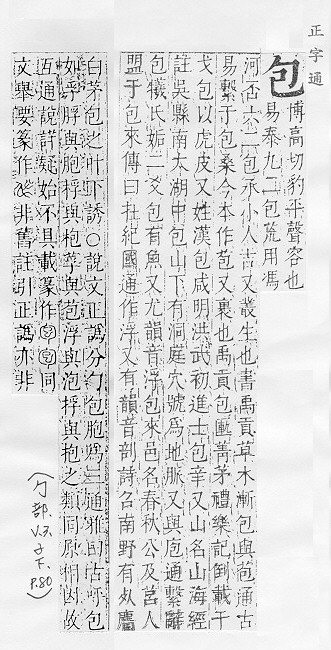 正字通
包
博高切豹平聲容也
易泰九二包荒用馮
河否六二包承小人古又叢生也書禹貢草木漸包與苞通古
易繫于包桑今本作苞又裹也禹貢包匭菁茅禮樂記倒載干
戈包以虎皮又姓漢包咸明洪武初進士包莘又山名山海經
註吳縣南太湖中包山下有洞庭穴號爲地脈又與庖通繫辭
包犧氏姤二爻包有魚又尤韻音浮包來邑名春秋公及莒人
盟于包來傳曰杜紀國通作浮又有韻音剖詩召南野有死麕
白茅包之叶下誘○說文正譌分勹包胞爲三通雅曰古呼包
如浮脬與胞桴與枹莩與苞浮與泡捊與抱之類同原相因故
互通說詳疑始不具載篆作同
文舉要篆作非舊註引正譌亦非
(勹部 子下 P.80)